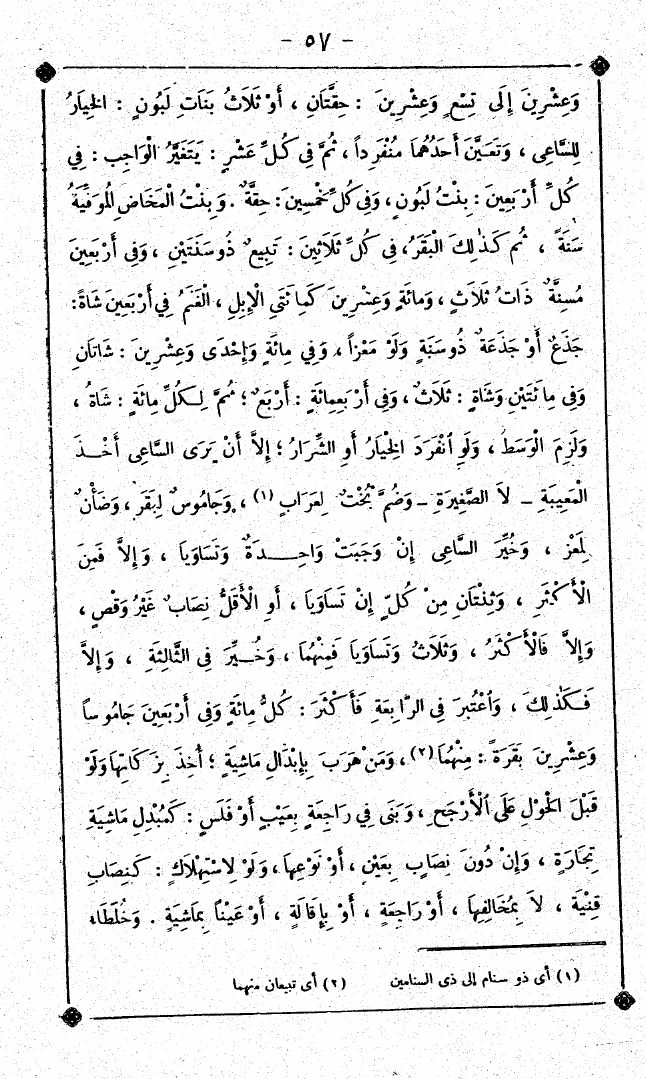 - ٥٧ -
وَعِشْرِينَ إِلَى تِسْعٍ وَعِشْرِينَ : حِقَّتَانِ ، أَوْ ثَلَاثُ بَنَاتِ لَبُونٍ : الْخِيَارُ
لِلسَّاعِى ، وَتَعَيَّنَ أَحَدُهُمَا مُنْفَرِداً ، ثُمَّ فِى كُلِّ عَشْرٍ : يَتَغَيَّرُ الْوَاجِبُ : فِي
كُلِّ أَرْبَعِينَ : بِنْتُ لَبُونٍ ، وَفِى كُلِّ خَمْسِينَ : حِقَّةٌ . وَبِنْتُ الْمَخَاضِ الْمُوَفِّيَةُ
سَنَةً ، ثُمَّ كَذٰلِكَ الْبَقَرُ ، فِى كُلِّ ثَلَاثِينَ : تَبِيعٌ ذُو سَنَتَيْنِ ، وَفِى أَرْبَعِينَ
مُسِنَّةٌ ذَاتُ ثَلَاثٍ ، وَمِائَةٍ وَعِشْرِينَ كَمِائَتَيِ الْإِبِلِ ، الْغَنَمُ فِي أَرْبَعِينَ شَاةً :
جَذَعٌ أَوْ جَذَعَةٌ ذُو سَنَةٍ وَلَوْ مَعْزاً ، وَفِي مِائَةٍ وَإِحْدَى وَعِشْرِينَ : شَاتَانِ
وَفِى مِائَتَيْنِ وَشَاةٍ : ثَلَاثٌ ، وَفِى أَرْبَعِمِائَةٍ : أَرْبَعٌ ؛ ثُمَّ لِكُلِّ مِائَةٍ : شَاةٌ ،
وَلَزِمَ الْوَسَطُ ، وَلَوِ انْفَرَدَ الْخِيَارُ أَوِ الشِّرَارُ ؛ إِلاَّ أَنْ يَرَى السَّاعِى أَخْذَ
الْمَعِيبَةِ – لاَ الصَّغِيرَةِ – وَضُمَّ بُخْتٌ لِعَرَابٍ (١) ، وَجَامُوسٌ لِبَقَرٍ ، وَضَأْنٌ
لِمَعْزٍ ، وَخُيِّرَ السَّاعِى إِنْ وَجَبَتْ وَاحِدَةٌ وَتَسَاوَيَا ، وَإِلاَّ فَمِنَ
الْأَكْثَرِ ، وَثِنْتَانِ مِنْ كُلٍّ إِنْ تَسَاوَيَا ، أَوِ الْأَقَلُّ نِصَابٌ غَيْرُ وَقَصٍ ،
وَإِلاَّ فَالْأَكْثَرُ ، وَثَلَاثٌ وَتَسَاوَيَا فَمِنْهُمَا ، وَخُيِّرَ فِى الثَّالِثَةِ ، وَإِلاَّ
فَكَذٰلِكَ ، وَاعْتُبِرَ فِى الرَّابِعَةِ فَأَكْثَرَ : كُلُّ مِائَةٍ وَفِى أَرْبَعِينَ جَامُوساً
وَعِشْرِينَ بَقَرَةً : مِنْهُمَا (٢) ، وَمَنْ هَرَبَ بِإِبْدَالِ مَاشِيَةٍ ؛ أُخِذَ بِزَكَاتِهَا وَلَوْ
قَبْلَ الْحَوْلِ عَلَى الْأَرْجَحِ ، وَبَنَى فِي رَاجِعَةٍ بِعَيْبٍ أَوْ فَلَسٍ : كَمُبْدِلِ مَاشِيَةِ
تِجَارَةٍ ، وَإِنْ دُونَ نِصَابٍ بِعَيْنٍ ، أَوْ نَوْعِهَا ، وَلَوْ لِاسْتِهْلَاكٍ : كَنِصَابِ
قِنْيَةٍ ، لاَ بِمُخَالِفِهَا ، أَوْ رَاجِعَةٍ ، أَوْ بِإِقَالَةٍ ، أَوْ عَيْناً بِمَاشِيَةٍ . وَخُلَطَاءُ
(١) أى ذو سنام إلى ذى السنامين (٢) أى تبيعان منهما